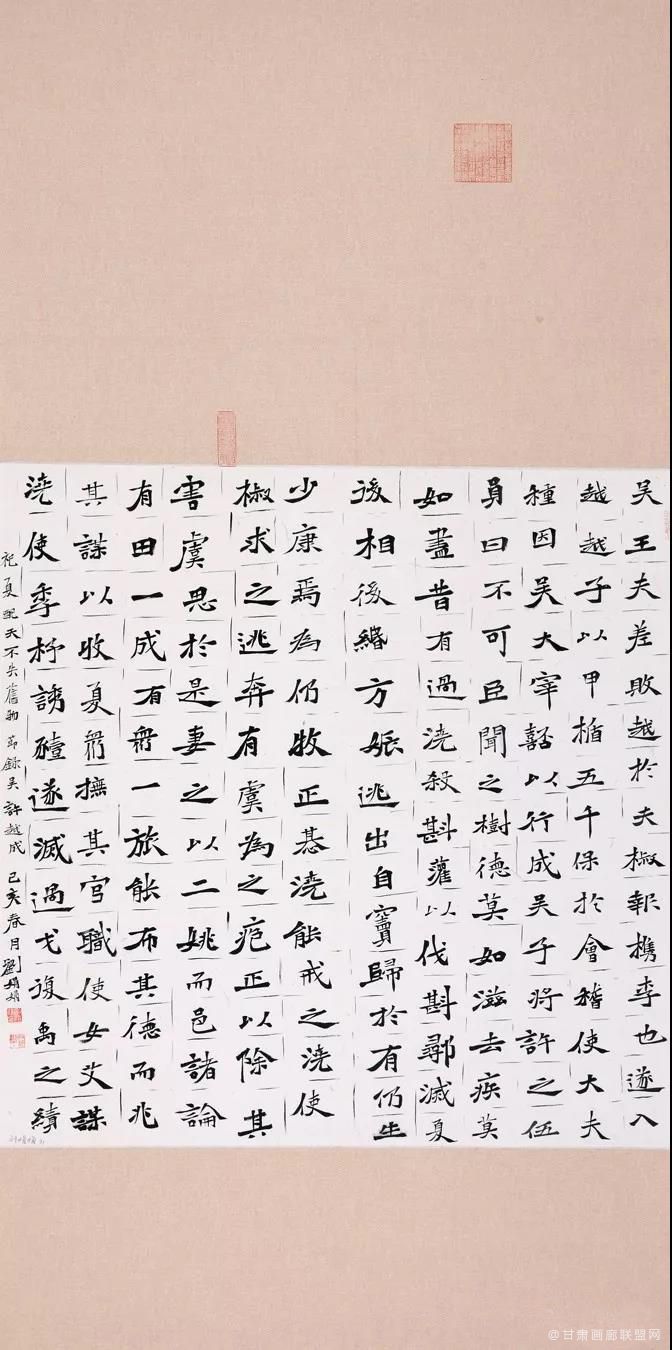 吴王夫差敗越於夫椒報檇李也遂入
越越子以甲楯五千保於會稽使大夫
種因吴大宰嚭以行成吴子將許之伍
員曰不可臣聞之樹德莫如滋去疾莫
如盡昔有過澆殺斟灌以伐斟鄩滅夏
後相後緡方娠逃出自竇歸於有仍生
少康焉為仍牧正惎澆能戒之澆使
椒求之逃奔有虞為之庖正以除其
害虞思於是妻之以二姚而邑諸論
有田一成有衆一旅能布其德而兆
其謀以收夏衆撫其官職使女艾謀
澆使季杼誘豷遂滅過戈復禹之績
祀夏配天不失舊物 節錄吴許越成 己亥春月劉娟娟
@甘肃画廊联盟网